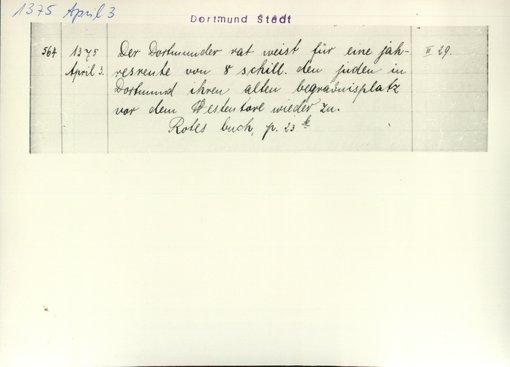 1375 April 3
Dortmund Stadt
564 1375 Der Dortmunder rat weist für eine jah- II 29.
April 3. resrente von 8 schill. den juden in
Dortmund ihren alten begräbnisplatz
vor dem Westentore wieder zu.
Rotes buch, p. 23